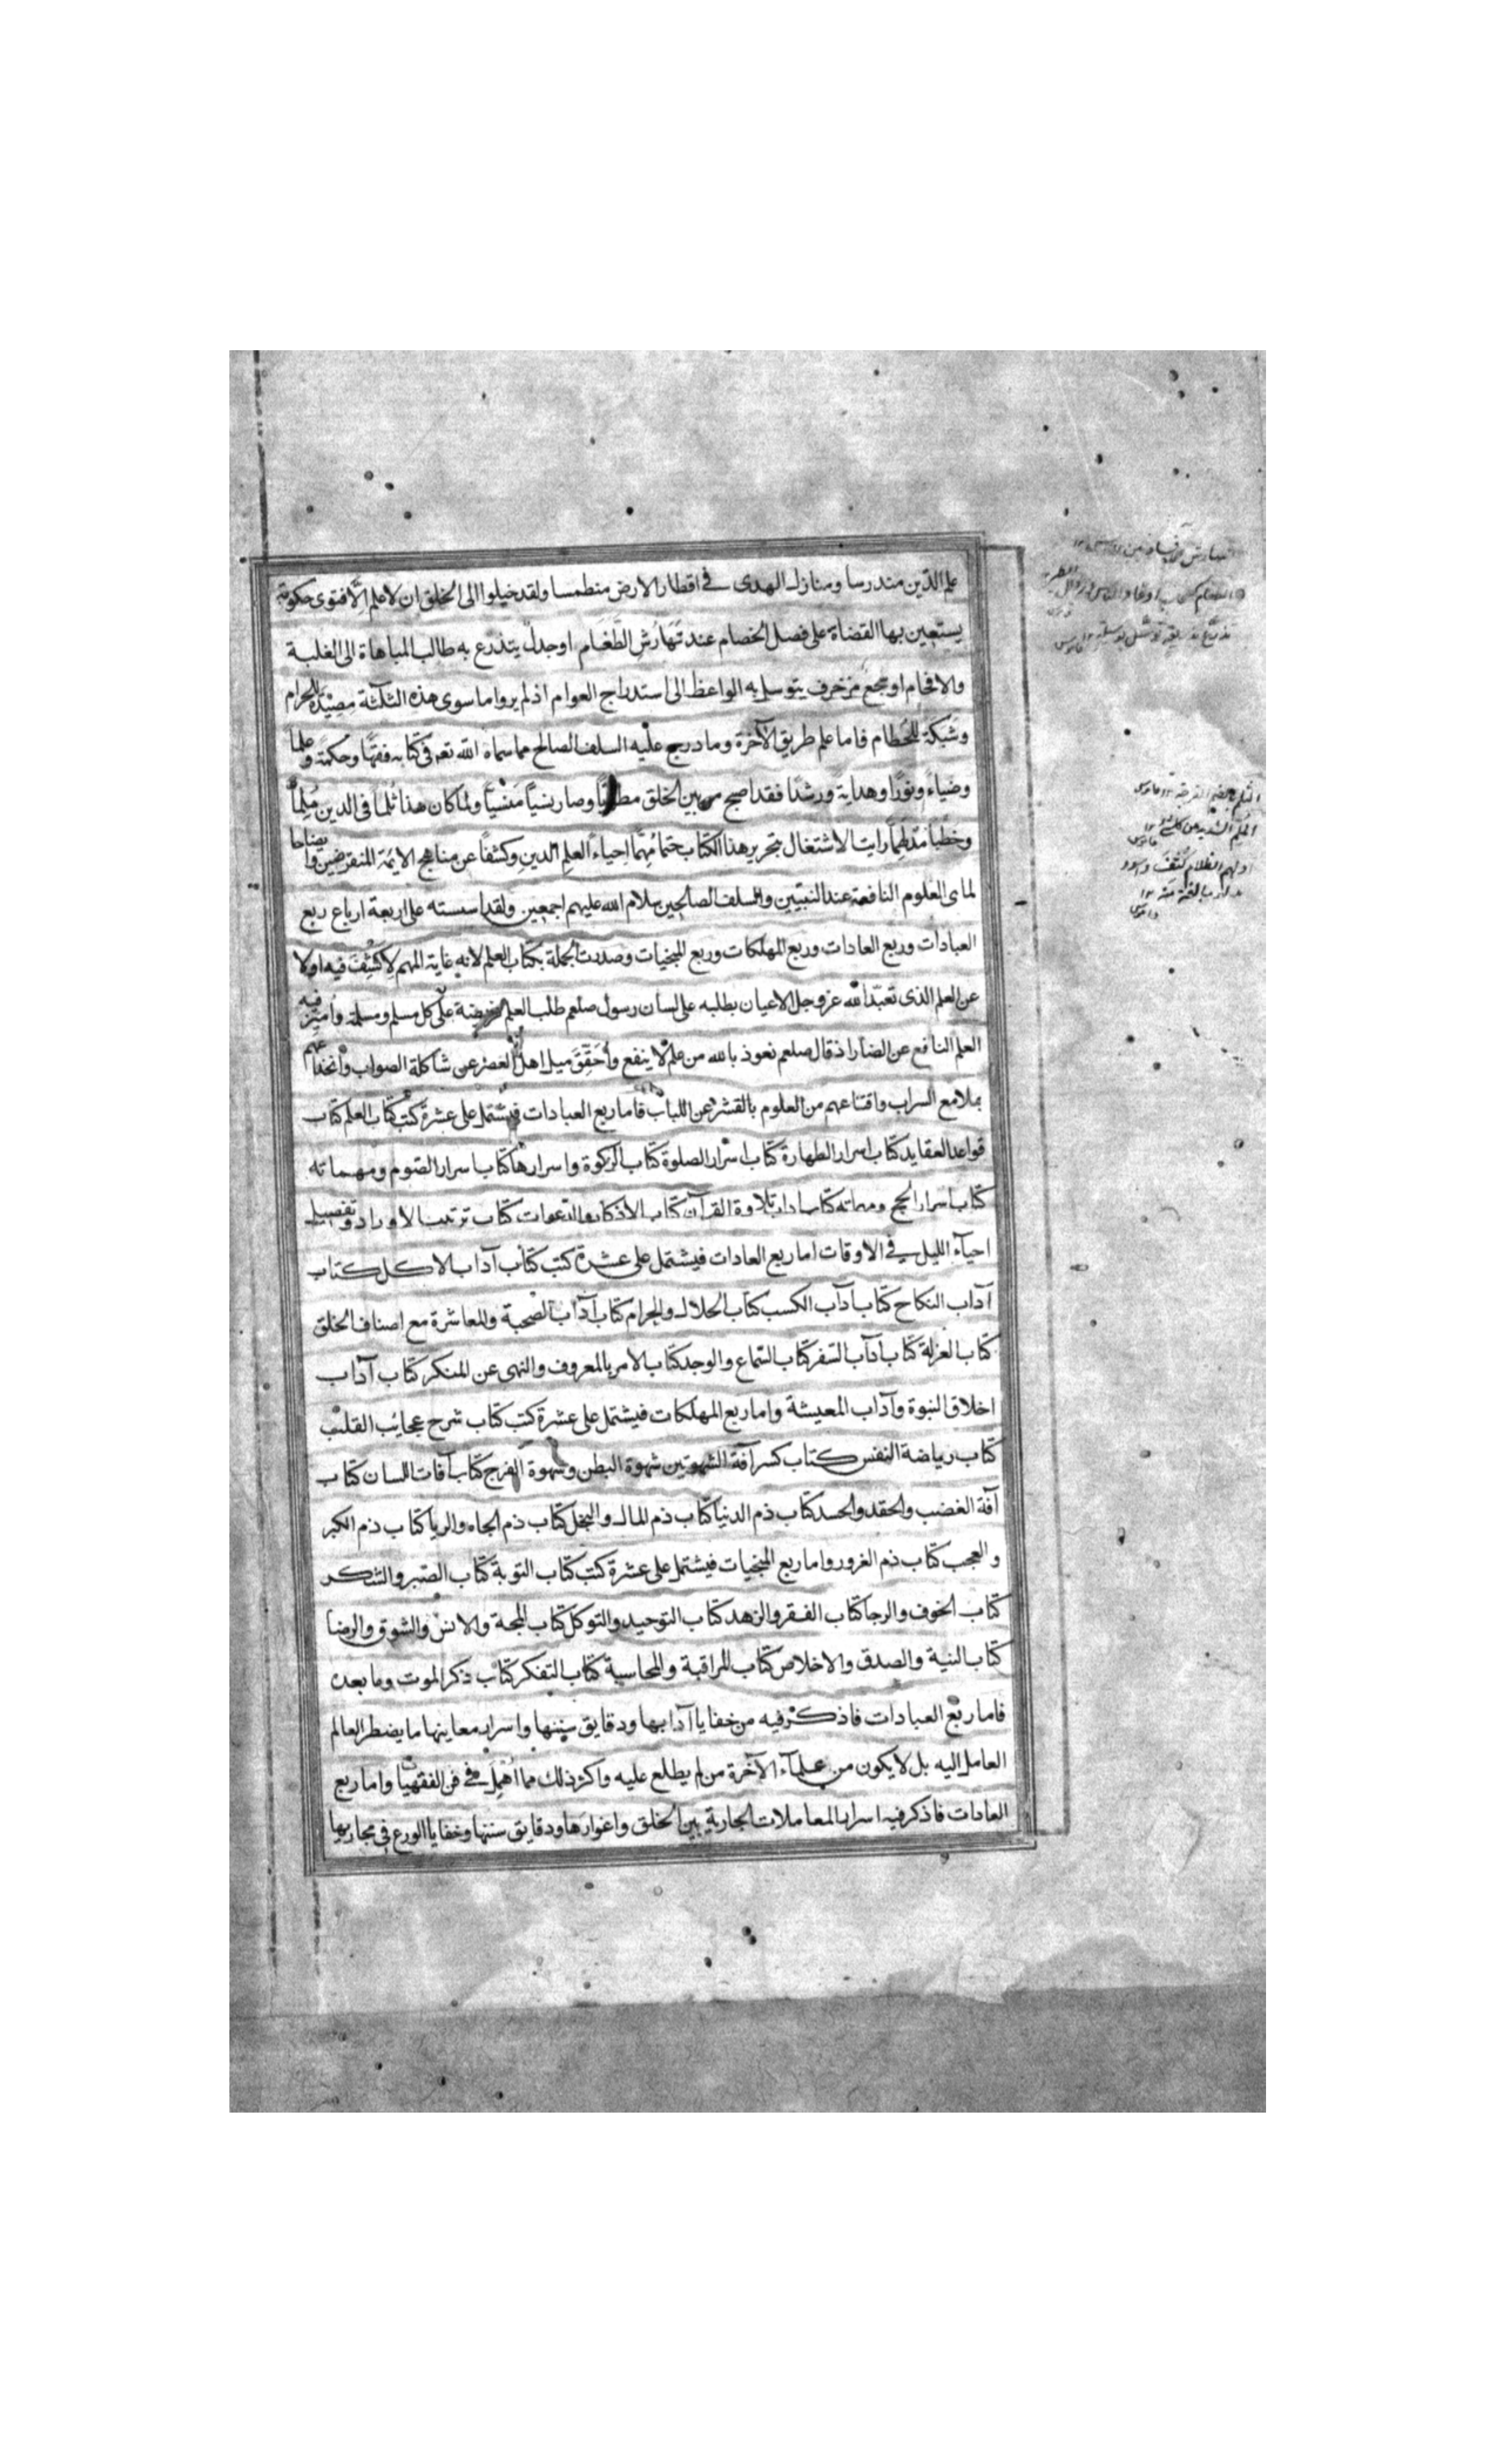 علم الدّين مندرسا ومنازل الهدى في اقطار الارض منطمسا ولقد خيلوا الى الخلق ان لا علم الّا فتوى حكومة
يستعين بها القضاة على فصل الخصام عند تَهَارُشِ الطَّغَام او جدل يتذرع به طالب المباهاة الى الغلبة
والافحام او سجع مزخرف يتوسل به الواعظ الى استدراج العوام اذ لم يروا ما سوى هذه الثلثة مِصْيَدَة للحرام
وشبكة للحُطام فاما علم طريق الآخرة وما درج عليه السلف الصالح مما سماه الله تعه فى كتابه فقهًا وحكمةً وعلما
وضياءً ونورًا وهدايةً ورشدًا فقد اصبح من بين الخلق مطويًّا وصار نسْيًا مَنْسيًّا ولما كان هذا ثُلْمًا فى الدين مُلِمًا
وخَطْبًا مُدْلَهِمًّا رايت الاشتغال بتحرير هذا الكتاب حتمًا مُهِمًّا احياءً العلم الدين وكشفًا عن مناهج الايمة المنقرضين وايضاحا
لما هى العلوم النافعة عند النبيّين والسلف الصالحين سلام الله عليهم اجمعين ولقد اسسته على اربعة ارباع ربع
العبادات وربع العادات وربع المهلكات وربع المنجيات وصدرت الجملة بكتاب العلم لانه غاية المهم لِاَكْشِفَ فيه اولا
عن العلم الذى تعبّد الله عز وجل الاعيان بطلبه على لسان رسول صلعم طلب العلم فريضة على كل مسلم ومسلمة واُميّز فيه
العلم النافع عن الضار اذ قال صلعم نعوذ بالله من علم لا ينفع وأُحَقِّقَ ميل اهل العَصْرِ عن شاكلة الصواب وانخداعهم
بملامع السراب واقتناعهم من العلوم بالقشر عن اللباب فاما ربع العبادات فيشتمل على عشرة كتب كتاب العلم كتاب
قواعد العقايد كتاب اسرار الطهارة كتاب اسرار الصلوة كتاب الزكوة واسرارها كتاب اسرار الصوم ومهماته
كتاب اسرار الحج ومهماته كتاب اداب تلاوة القرآن كتاب الاذكار والدعوات كتاب ترتيب الاوراد وتفصيل
احيآء الليل في الاوقات اما ربع العادات فيشتمل على عشرة كتب كتاب آداب الاكل كتاب
آداب النكاح كتاب آداب الكسب كتاب الحلال والحرام كتاب آداب الصحبة والمعاشرة مع اصناف الخلق
كتاب العزلة كتاب آداب السفر كتاب السّماع والوجد كتاب الامر بالمعروف والنهى عن المنكر كتاب آداب
اخلاق النبوة وآداب المعيشة واما ربع المهلكات فيشتمل على عشرة كتب كتاب شرح عجايب القلب
كتاب رياضة النفس كتاب كسر آفة الشهوتين شهوة البطن وشهوة الفرج كتاب آفات اللسان كتاب
آفة الغضب والحقد والحسد كتاب ذم الدنيا كتاب ذم المال والبخل كتاب ذم الجاه والريا كتاب ذم الكبر
والعجب كتاب ذم الغرور واما ربع المنجيات فيشتمل على عشرة كتب كتاب التوبة كتاب الصّبر والشكر
كتاب الخوف والرجا كتاب الفقر والزهد كتاب التوحيد والتوكل كتاب المحبة والانس والشوق والرضا
كتاب النية والصدق والاخلاص كتاب المراقبة والمحاسبة كتاب التفكر كتاب ذكر الموت وما بعده
فاما ربع العبادات فاذكر فيه من خفايا آدابها ودقايق سننها واسرار معاينها ما يضطر العالم
العامل اليه بل لا يكون من علمآء الآخرة من لم يطلع عليه واكثر ذلك مما اُهْمِل في فن الفقهيات واما ربع
العادات فاذكر فيه اسرار المعاملات الجارية بين الخلق واغوارها ودقايق سننها وخفايا الورع فى مجاريها